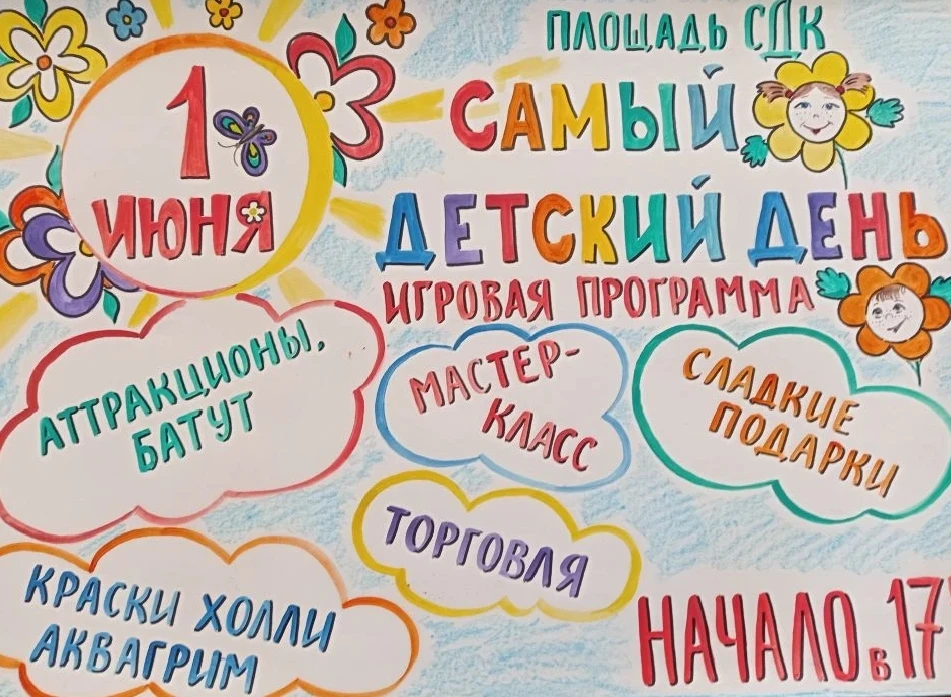 1
ИЮНЯ
ПЛОЩАДЬ СДК
САМЫЙ
ДЕТСКИЙ ДЕНЬ
ИГРОВАЯ ПРОГРАММА
АТТРАКЦИОНЫ,
БАТУТ
МАСТЕР-
КЛАСС
СЛАДКИЕ
ПОДАРКИ
ТОРГОВЛЯ
КРАСКИ ХОЛЛИ
АКВАГРИМ
НАЧАЛО в 17